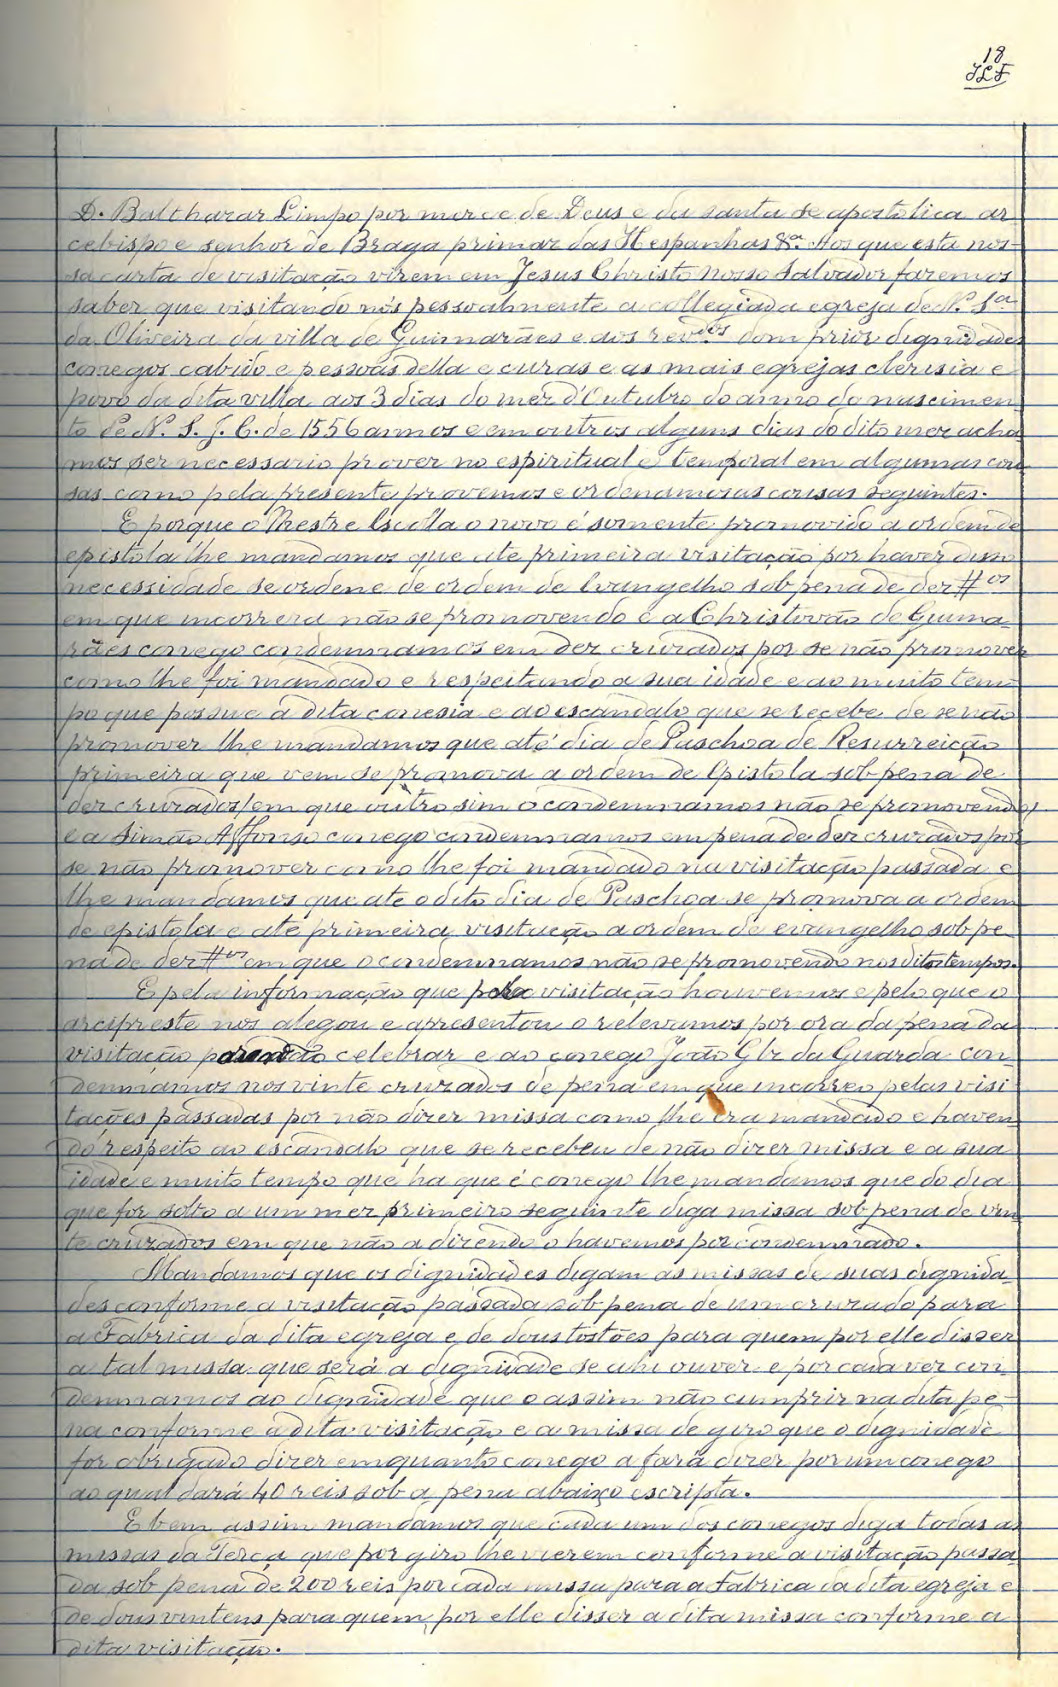 18
JLF
D. Balthazar Limpo por merce de Deus e da santa se apostolica ar
cebispo e senhor de Braga primaz das Hespanhas &.ª Aos que esta nos-
sa carta de visitação virem em Jesus Christo nosso Salvador fazemos
saber que visitando nós pessoalmente a collegiada egreja de N. S.ra
da Oliveira da villa de Guimarães e aos rev.dos dom prior dignidades
conegos cabido e pessoas della e curas e as mais egrejas cleresia e
povo da dita villa aos 3 dias do mez d'Outubro do anno do nascimen
to de N. S. J. C. de 1556 annos e em outros alguns dias do dito mez acha
mos ser necessario prover no espiritual e temporal em algumas cou
sas como pela presente provemos e ordenamos as cousas seguintes.
E porque o Mestre Escóla o novo é somente promovido a ordem de
epistola lhe mandamos que ate primeira visitação por haver disso
necessidade se ordene de ordem de Evangelho sob pena de dez #os
em que incorrera não se promovendo e a Christovão de Guima-
rães conego condemnamos em dez cruzados por se não promover
como lhe foi mandado e respeitando a sua idade e ao muito tem-
po que possue a dita conesia e ao escandalo que se recebe de se não
promover lhe mandamos que até dia de Paschoa de Resurreição
primeira que vem se promova a ordem de Epistola sob pena de
dez cruzados em que outro sim o condemnamos não se promovendo
e a Simão Affonso conego condemnamos em pena de dez cruzados por
se não promover como lhe foi mandado na visitação passada e
lhe mandamos que ate o dito dia de Paschoa se promova a ordem
de epistola e até primeira visitação a ordem de evangelho sob pe
na de dez #os em que o condemnamos não se promovendo nos ditos tempos.
E pela informação que pela visitação houvemos e pelo que o
arcipreste nos alegou e apresentou o relevamos por ora da pena da
visitação por não celebrar e ao conego João Glz da Guarda con-
demnamos nos vinte cruzados de pena em que incorreo pelas visi
tações passadas por não dizer missa como lhe era mandado e haven
do respeito ao escandalo que se recebeu de não dizer missa e a sua
idade e muito tempo que ha que é conego lhe mandamos que do dia
que for solto a um mez primeiro seguinte diga missa sob pena de vin
te cruzados em que não a dizendo o havemos por condemnado.
Mandamos que os dignidades digam as missas de suas dignida
des conforme a visitação passada sob pena de um cruzado para
a Fabrica da dita egreja e de dous tostões para quem por elle disser
a tal missa que será a dignidade se ahi ouver e por cada vez con-
demnamos ao dignidade que o assim não cumprir na dita pe-
na conforme a dita visitação e a missa de giro que o dignidade
for obrigado dizer emquanto conego a fará dizer por um conego
ao qual dará 40 reis sob a pena abaixo escripta.
E bem assim mandamos que cada um dos conegos diga todas as
missas da Terça que por giro lhe vierem conforme a visitação passa
da sob pena de 200 reis por cada missa para a Fabrica da dita egreja e
de dous vintens para quem por elle disser a dita missa conforme a
dita visitação.